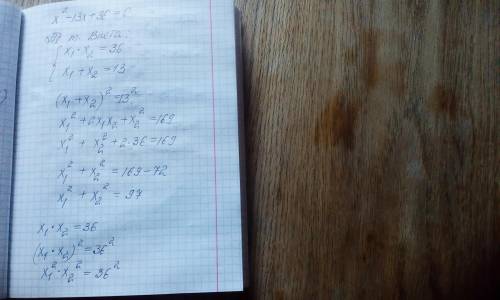 x² - 13x + 36 = 0
т. Виета:
{ x₁ · x₂ = 36
{ x₁ + x₂ = 13
(x₁ + x₂)² = 13²
x₁² + 2x₁x₂ + x₂² = 169
x₁² + x₂² + 2·36 = 169
x₁² + x₂² = 169 - 72
x₁² + x₂² = 97
x₁ · x₂ = 36
(x₁ · x₂)² = 36²
x₁² · x₂² = 36²